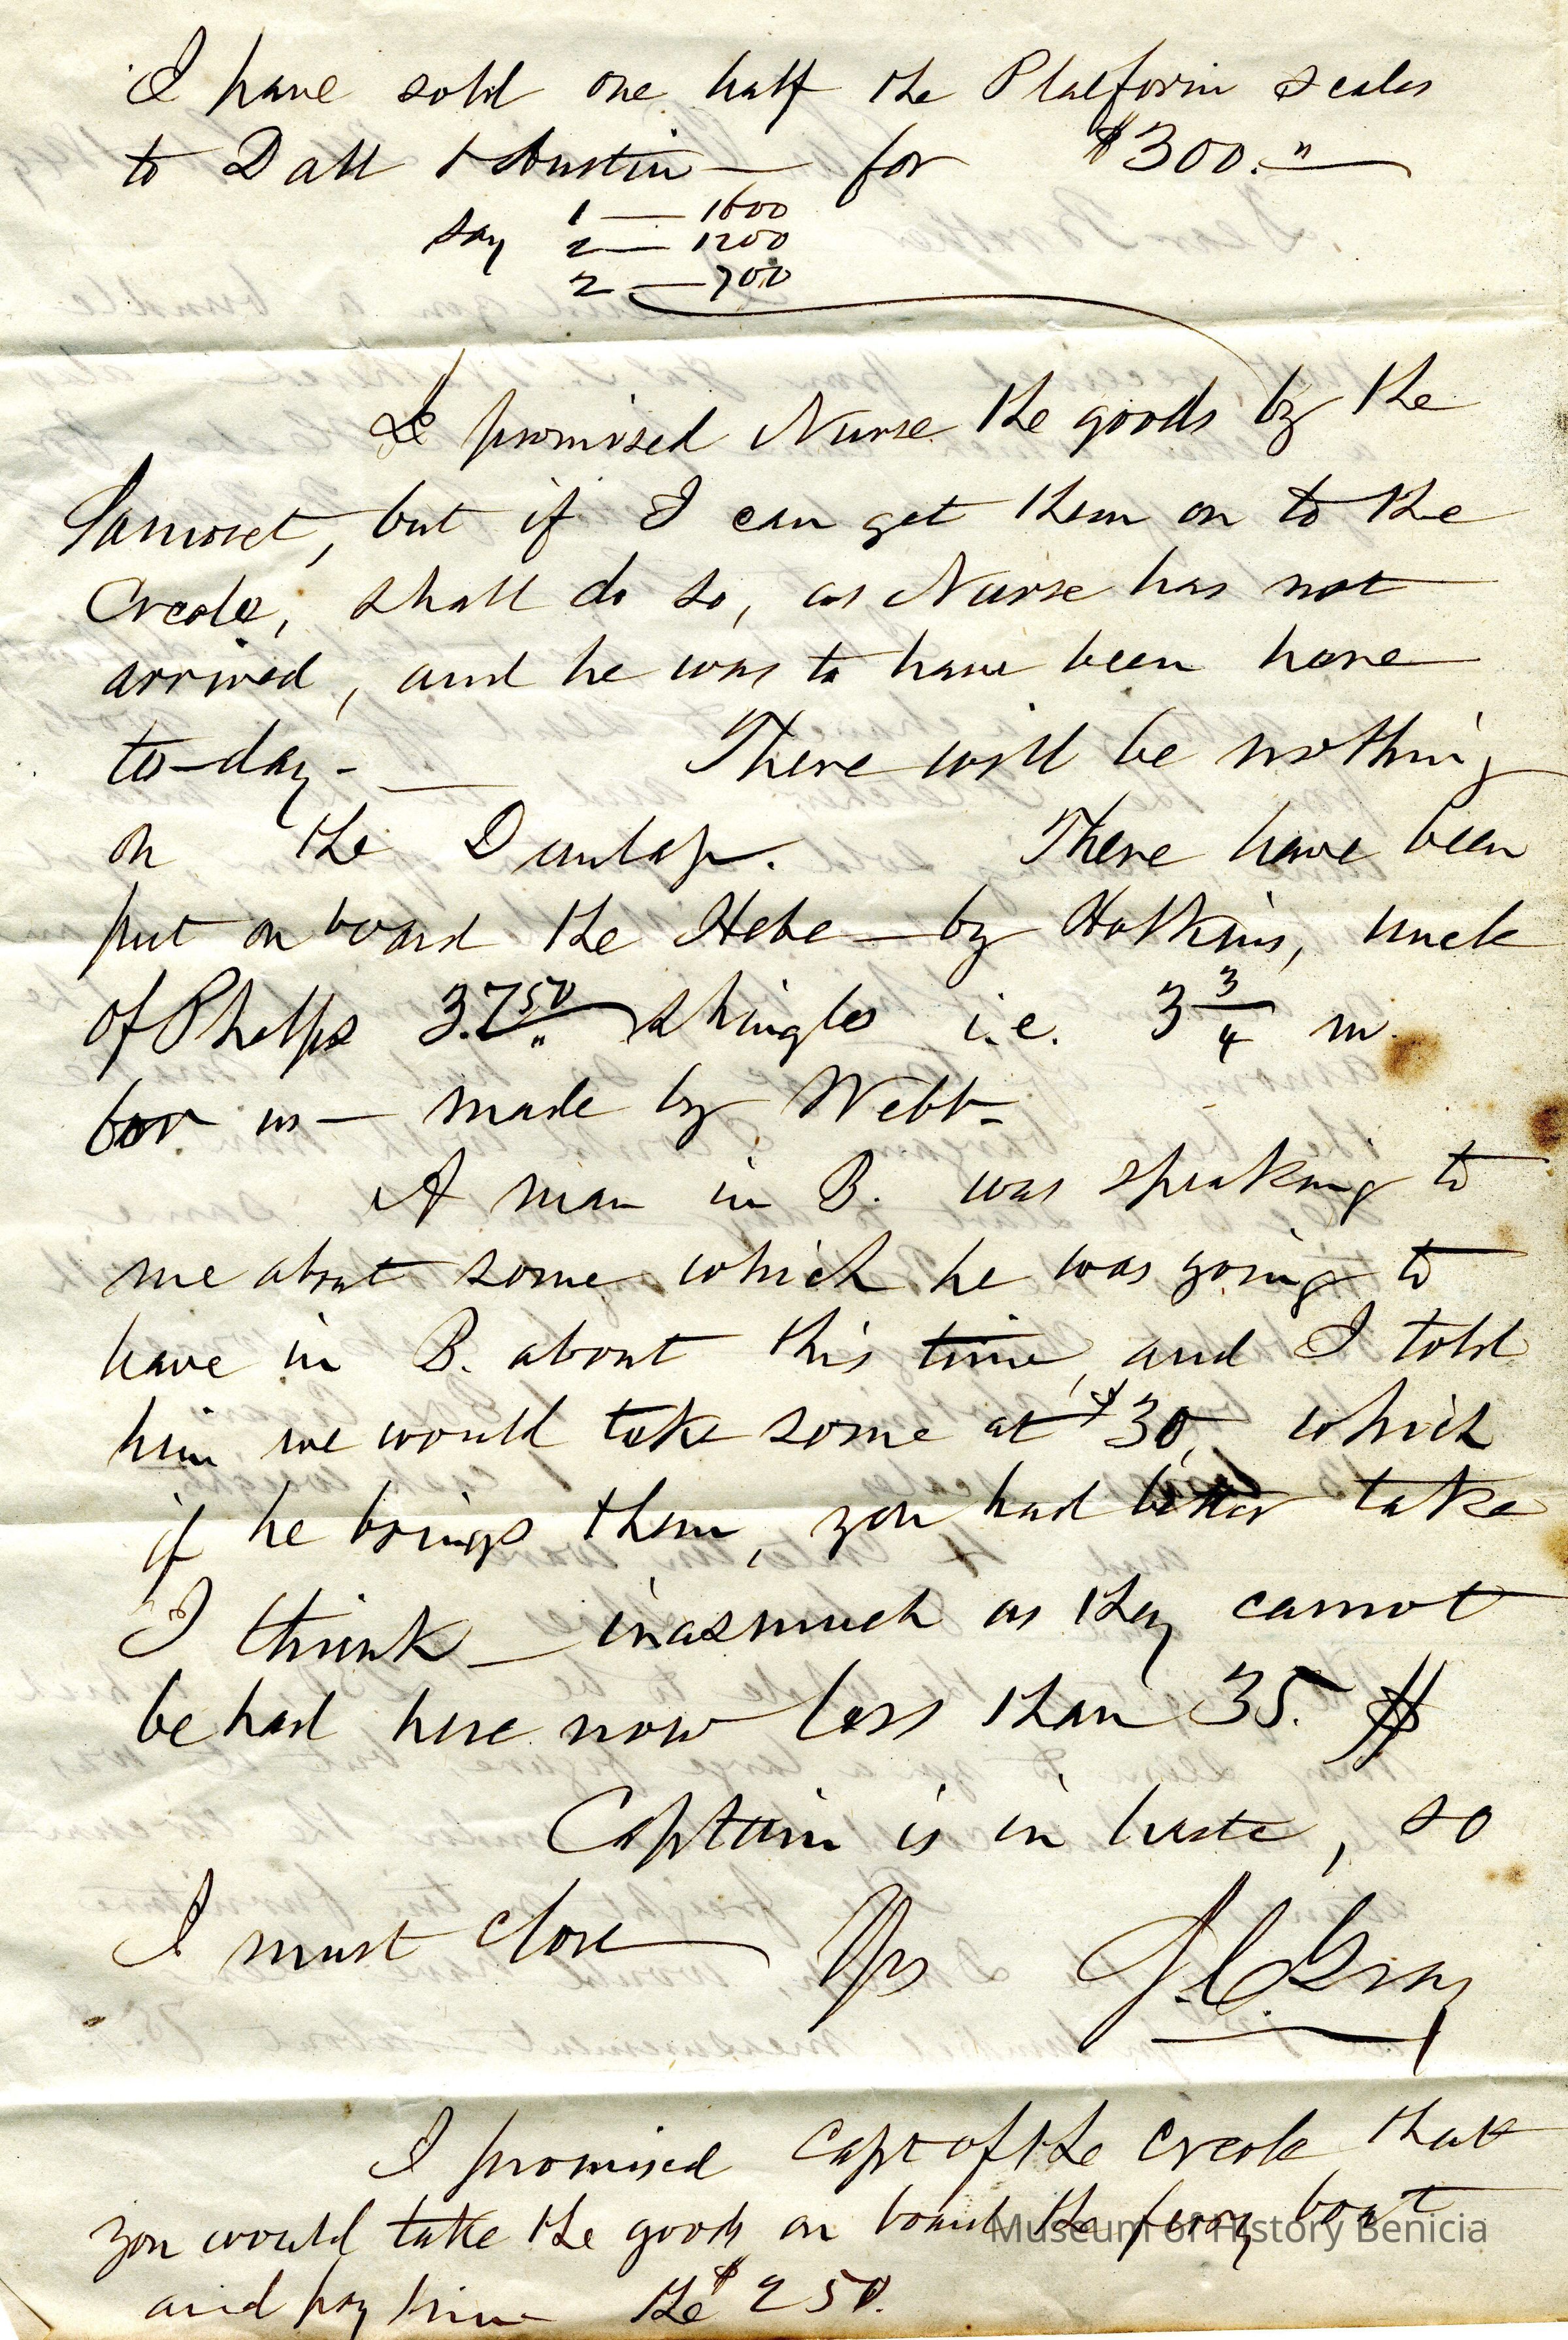 I have sold one half the Platform scales
to Dall & Austin — for $300."—
say 1 — 1600
2 — 1200
2 — 700
I promised Nurse the goods by the
Samoset, but if I can get them on to the
Creole, shall do so, as Nurse has not
arrived, and he was to have been here
to-day - — There will be nothing
on the Dunlap. There have been
put on board the Hebe — by Hotkins, uncle
of Phelps 3.750 shingles i.e. 3 3/4 m.
for us — made by Webb -
A man in B. was speaking to
me about some which he was going to
have in B. about this time, and I told
him we would take some at $30, which
if he brings them, you had better take
I think — inasmuch as they cannot
be had here now less than 35. $
Captain is in haste, so
I must close — Yrs J. C. Gray
I promised Capt of the Creole that
you would take the goods on board the ferry boat
and pay him the $250.
Museum of History Benicia